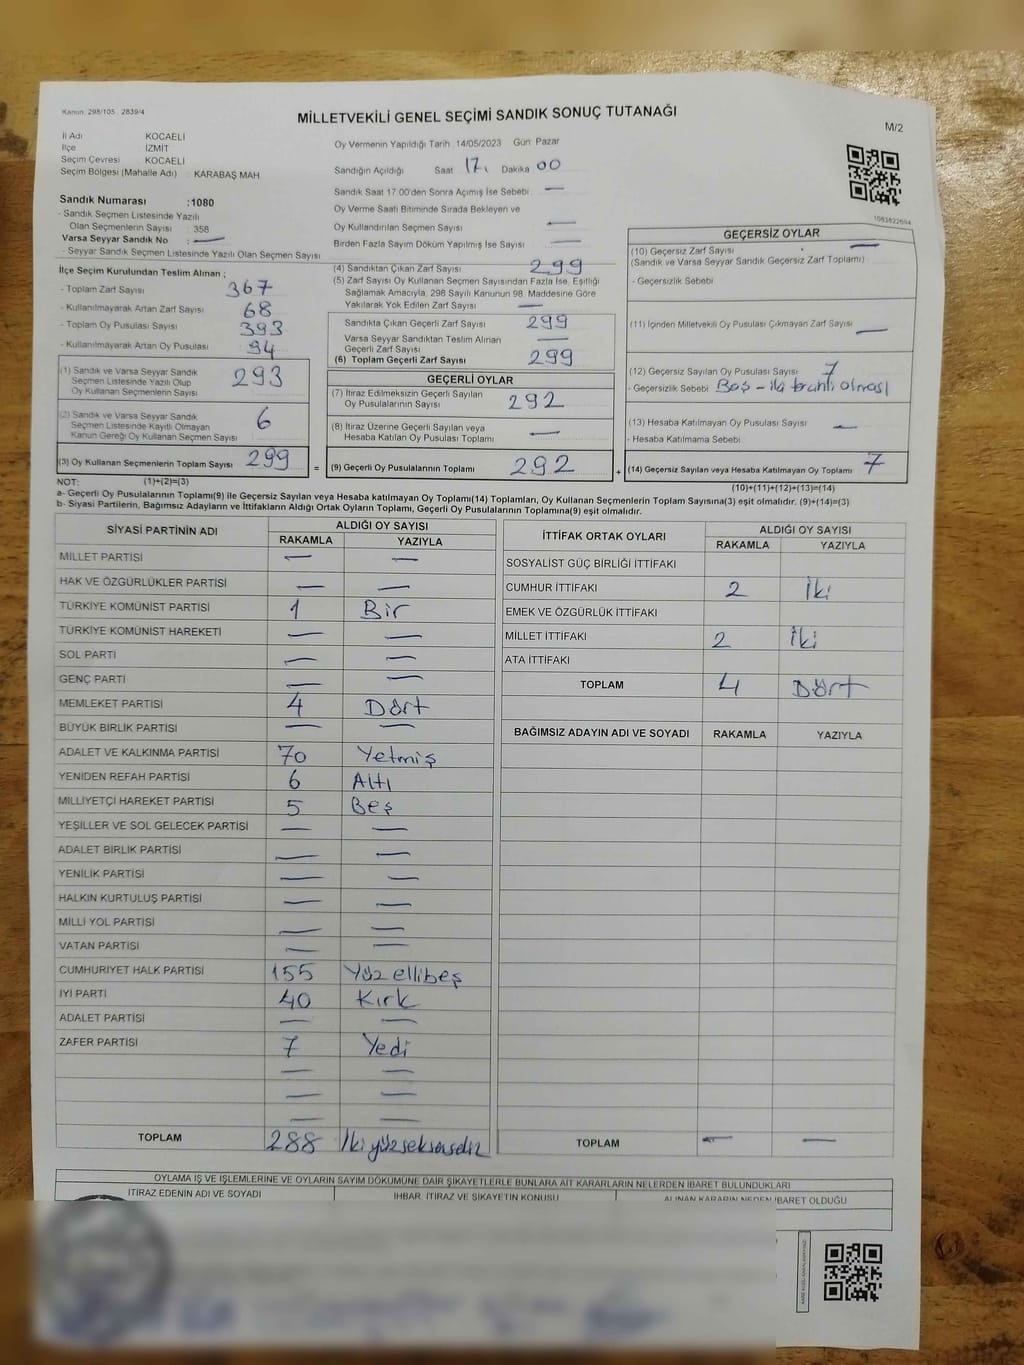 Kanun: 298/105 , 2839/4
MİLLETVEKİLİ GENEL SEÇİMİ SANDIK SONUÇ TUTANAĞI
M/2
İl Adı KOCAELİ
İlçe İZMİT
Seçim Çevresi KOCAELİ
Seçim Bölgesi (Mahalle Adı) : KARABAŞ MAH.
Sandık Numarası :1080
- Sandık Seçmen Listesinde Yazılı
Olan Seçmenlerin Sayısı : 358
Varsa Seyyar Sandık No : —
- Seyyar Sandık Seçmen Listesinde Yazılı Olan Seçmen Sayısı
Oy Vermenin Yapıldığı Tarih 14/05/2023 Gün: Pazar
Sandığın Açıldığı Saat 17. Dakika 00
Sandık Saat 17:00'den Sonra Açımış İse Sebebi —
Oy Verme Saati Bitiminde Sırada Bekleyen ve
Oy Kullandırılan Seçmen Sayısı —
Birden Fazla Sayım Döküm Yapılmış İse Sayısı —
İlçe Seçim Kurulundan Teslim Alınan ;
- Toplam Zarf Sayısı 367
- Kullanılmayarak Artan Zarf Sayısı 68
- Toplam Oy Pusulası Sayısı 393
- Kullanılmayarak Artan Oy Pusulası 94
(1) Sandık ve Varsa Seyyar Sandık
Seçmen Listesinde Yazılı Olup
Oy Kullanan Seçmenlerin Sayısı 293
(2) Sandık ve Varsa Seyyar Sandık
Seçmen Listesinde Kayıtlı Olmayan
Kanun Gereği Oy Kullanan Seçmen Sayısı 6
(3) Oy Kullanan Seçmenlerin Toplam Sayısı 299
(4) Sandıktan Çıkan Zarf Sayısı 299
(5) Zarf Sayısı Oy Kullanan Seçmen Sayısından Fazla İse, Eşitliği
Sağlamak Amacıyla, 298 Sayılı Kanunun 98. Maddesine Göre
Yakılarak Yok Edilen Zarf Sayısı —
Sandıkta Çıkan Geçerli Zarf Sayısı 299
Varsa Seyyar Sandıktan Teslim Alınan
Geçerli Zarf Sayısı —
(6) Toplam Geçerli Zarf Sayısı 299
GEÇERLİ OYLAR
(7) İtiraz Edilmeksizin Geçerli Sayılan
Oy Pusulalarının Sayısı 292
(8) İtiraz Üzerine Geçerli Sayılan veya
Hesaba Katılan Oy Pusulası Toplamı —
= (9) Geçerli Oy Pusulalarının Toplamı 292 +
GEÇERSİZ OYLAR
(10) Geçersiz Zarf Sayısı —
(Sandık ve Varsa Seyyar Sandık Geçersiz Zarf Toplamı)
- Geçersizlik Sebebi
(11) İçinden Milletvekili Oy Pusulası Çıkmayan Zarf Sayısı —
(12) Geçersiz Sayılan Oy Pusulası Sayısı 7
- Geçersizlik Sebebi Boş - olması
(13) Hesaba Katılmayan Oy Pusulası Sayısı —
- Hesaba Katılmama Sebebi
(14) Geçersiz Sayılan veya Hesaba Katılmayan Oy Toplamı 7
NOT: (1)+(2)=(3) (10)+(11)+(12)+(13)=(14)
a- Geçerli Oy Pusulalarının Toplamı(9) ile Geçersiz Sayılan veya Hesaba katılmayan Oy Toplamı(14) Toplamları, Oy Kullanan Seçmenlerin Toplam Sayısına(3) eşit olmalıdır. (9)+(14)=(3)
b- Siyasi Partilerin, Bağımsız Adayların ve İttifakların Aldığı Ortak Oyların Toplamı, Geçerli Oy Pusulalarının Toplamına(9) eşit olmalıdır.
SİYASİ PARTİNİN ADI ALDIĞI OY SAYISI
RAKAMLA YAZIYLA
MİLLET PARTİSİ — —
HAK VE ÖZGÜRLÜKLER PARTİSİ — —
TÜRKİYE KOMÜNİST PARTİSİ 1 Bir
TÜRKİYE KOMÜNİST HAREKETİ — —
SOL PARTİ — —
GENÇ PARTİ — —
MEMLEKET PARTİSİ 4 Dört
BÜYÜK BİRLİK PARTİSİ — —
ADALET VE KALKINMA PARTİSİ 70 Yetmiş
YENİDEN REFAH PARTİSİ 6 Altı
MİLLİYETÇİ HAREKET PARTİSİ 5 Beş
YEŞİLLER VE SOL GELECEK PARTİSİ — —
ADALET BİRLİK PARTİSİ — —
YENİLİK PARTİSİ — —
HALKIN KURTULUŞ PARTİSİ — —
MİLLİ YOL PARTİSİ — —
VATAN PARTİSİ — —
CUMHURİYET HALK PARTİSİ 155 Yüz ellibeş
İYİ PARTİ 40 Kırk
ADALET PARTİSİ — —
ZAFER PARTİSİ 7 Yedi
— —
— —
— —
TOPLAM 288 İkiyüzseksensekiz
İTTİFAK ORTAK OYLARI ALDIĞI OY SAYISI
RAKAMLA YAZIYLA
SOSYALİST GÜÇ BİRLİĞİ İTTİFAKI
CUMHUR İTTİFAKI 2 İki
EMEK VE ÖZGÜRLÜK İTTİFAKI
MİLLET İTTİFAKI 2 İki
ATA İTTİFAKI
TOPLAM 4 Dört
BAĞIMSIZ ADAYIN ADI VE SOYADI RAKAMLA YAZIYLA
TOPLAM — —
OYLAMA İŞ VE İŞLEMLERİNE VE OYLARIN SAYIM DÖKÜMÜNE DAİR ŞİKAYETLERLE BUNLARA AİT KARARLARIN NELERDEN İBARET BULUNDUKLARI
İTİRAZ EDENİN ADI VE SOYADI İHBAR, İTİRAZ VE ŞİKAYETİN KONUSU ALINAN KARARIN NEDEN İBARET OLDUĞU